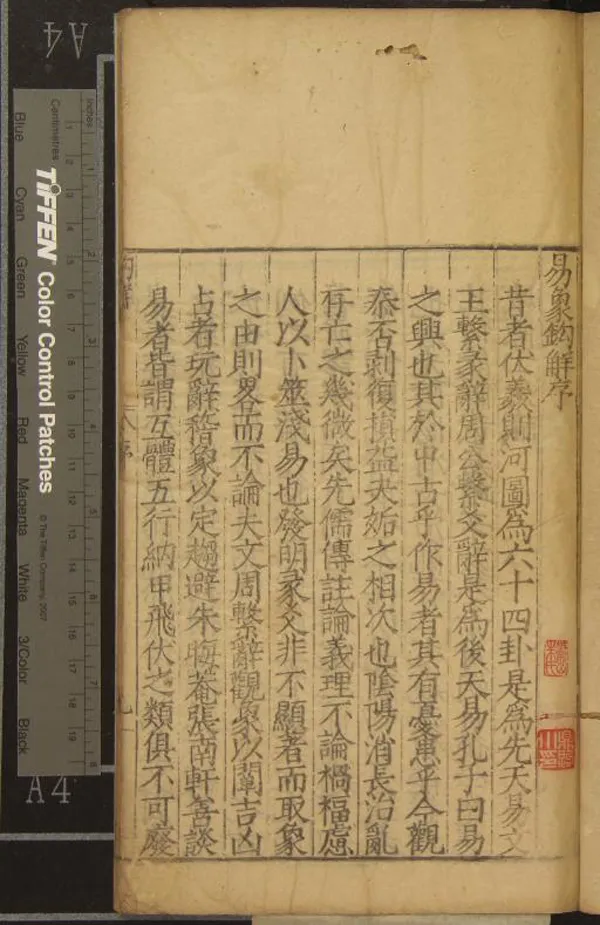 易象鈎解序
昔者伏羲則河圖為六十四卦是為先天易文
王繫彖辭周公繫爻辭是為後天易孔子曰易
之興也其於中古乎作易者其有憂患乎今觀
泰否剥復損益夬姤之相次也陰陽消長治亂
存亡之幾微矣先儒傳註論義理不論禍福慮
人以卜筮淺易也發明彖爻非不顯者而取象
之由則畧而不論夫文周繫辭觀象以闡吉凶
占者玩辭稽象以定趨避朱晦菴張南軒善談
易者皆謂互體五行納甲飛伏之類俱不可廢
序
A4
A4
inches
Centimetres
TIFFEN Color Control Patches
© The Tiffen Company, 2007
Blue Cyan Green Yellow Red Magenta White 3/Color Black
1 2 3 4 5 6 7 8
1 2 3 4 5 6 7 8 9 10 11 12 13 14 15 16 17 18 19